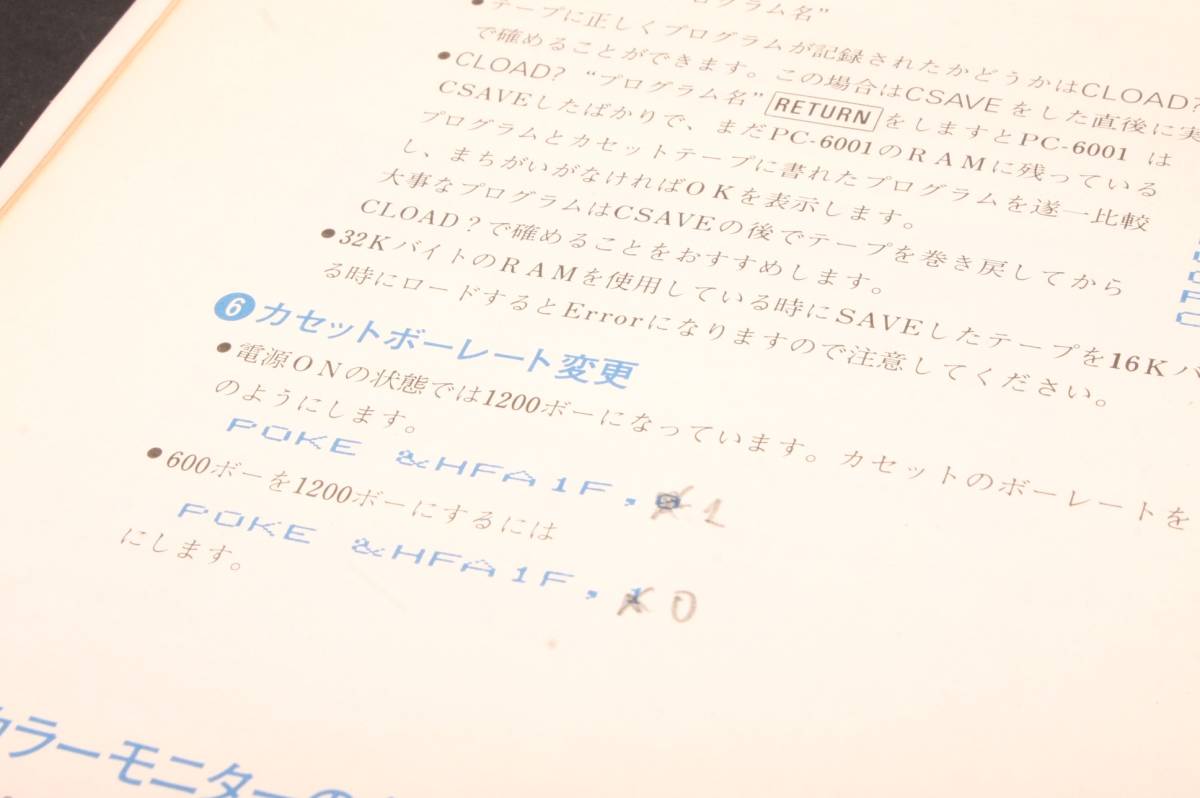 ログラム名”
●テープに正しくプログラムが記録されたかどうかはCLOAD?
で確めることができます。この場合はCSAVEをした直後に実
●CLOAD? “プログラム名” RETURN をしますとPC-6001 は
CSAVEしたばかりで、まだPC-6001のRAMに残っている
プログラムとカセットテープに書れたプログラムを遂一比較
し、まちがいがなければOKを表示します。
大事なプログラムはCSAVEの後でテープを巻き戻してから
CLOAD?で確めることをおすすめします。
●32KバイトのRAMを使用している時にSAVEしたテープを16Kバ
る時にロードするとErrorになりますので注意してください。
6 カセットボーレート変更
●電源ONの状態では1200ボーになっています。カセットのボーレートを
のようにします。
POKE &HFA1F,0 1
●600ボーを1200ボーにするには
POKE &HFA1F,1 0
にします。
カラーモニターの